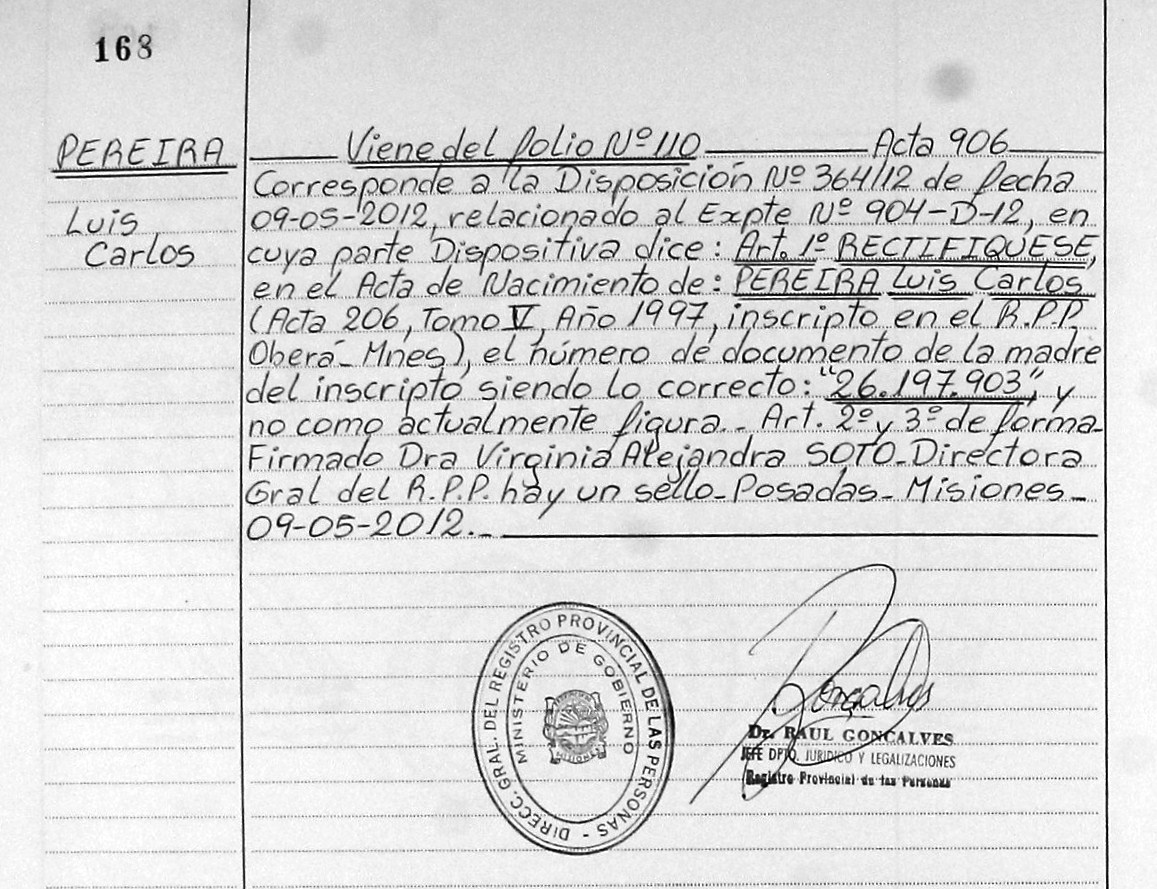 168
PEREIRA
Luis
Carlos
Viene del folio Nº 110 Acta 906
Corresponde a la Disposición Nº 364/12 de fecha
09-05-2012, relacionado al Expte Nº 904-D-12, en
cuya parte Dispositiva dice: Art. 1º RECTIFIQUESE,
en el Acta de Nacimiento de: PEREIRA Luis Carlos
(Acta 206, Tomo V, Año 1997, inscripto en el R.P.P.
Oberá- Mnes), el número de documento de la madre
del inscripto siendo lo correcto: "26.197.903", y
no como actualmente figura.- Art. 2º y 3º de forma-
Firmado Dra Virginia Alejandra SOTO-Directora
Gral del R.P.P. hay un sello-Posadas- Misiones-
09-05-2012.-
DIRECC. GRAL. DEL REGISTRO PROVINCIAL DE LAS PERSONAS -
MINISTERIO DE GOBIERNO
MISIONES
Goncalves
Dr. RAUL GONCALVES
JEFE DPTO. JURIDICO Y LEGALIZACIONES
Registro Provincial de las Personas